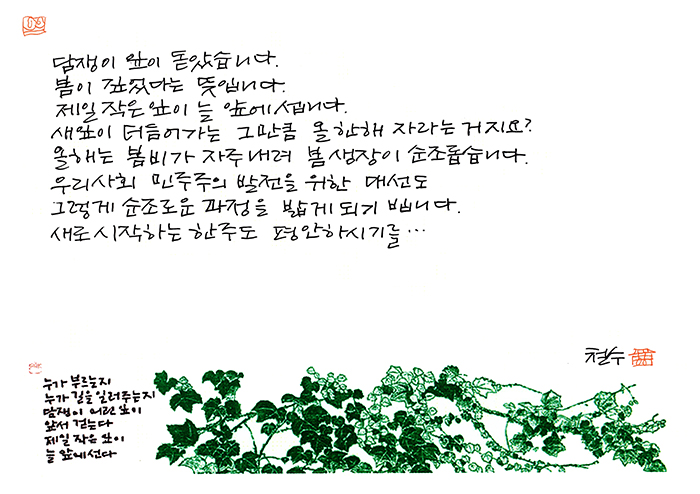 담쟁이 잎이 돋았습니다.
봄이 깊었다는 뜻입니다.
제일 작은 잎이 늘 앞에 섭니다.
새잎이 더듬어가는 그만큼 올 한해 자라는 거지요?
올해는 봄비가 자주 내려 봄 생장이 순조롭습니다.
우리사회 민주주의 발전을 위한 대선도
그렇게 순조로운 과정을 밟게 되기 빕니다.
새로 시작하는 한주도 평안하시기를…
철수
누가 부르는지
누가 길을 일러주는지
담쟁이 어린 잎이
앞서 걷는다
제일 작은 잎이
늘 앞에 선다